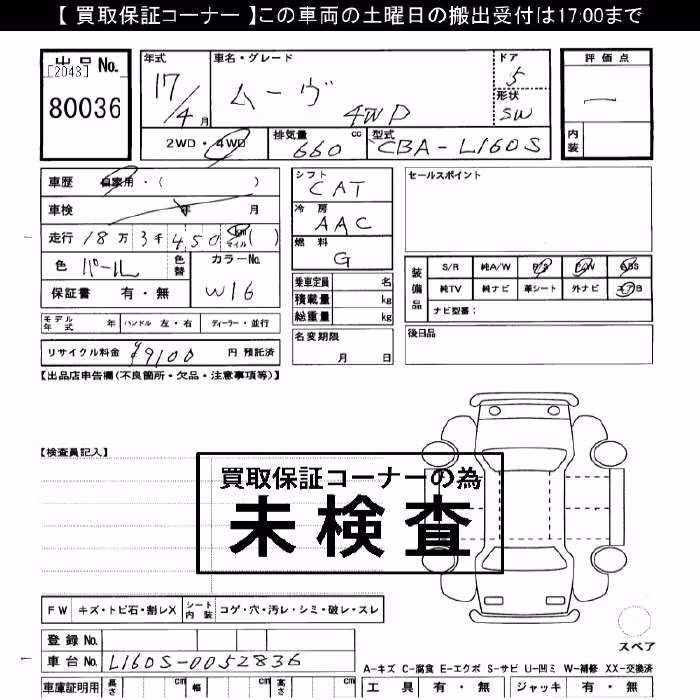 【 買取保証コーナー 】この車両の土曜日の搬出受付は17:00まで
出品 No.
[2043]
80036
年式
17/4月
車名・グレード
ムーヴ
4WD
ドア
5
形状
SW
評価点
一
内装
2WD・4WD
排気量 660 cc
型式 CBA-L160S
車歴 自家用・( )
車検 年 月
走行 18万3千450 km マイル ( )
色 パール
色替
カラーNo.
W16
保証書 有・無
シフト
CAT
冷房
AAC
燃料
G
乗車定員 名
積載量 kg
総重量 kg
セールスポイント
装備品
S/R 純A/W P/S P/W ABS
純TV 純ナビ 革シート 外ナビ エアB
ナビ型番:
モデル年式 年 ハンドル 左・右 ディーラー・並行
リサイクル料金 ¥9100 円 預託済
名変期限
月 日
後日品
【出品店申告欄(不良箇所・欠品・注意事項等)】
【検査員記入】
買取保証コーナーの為
未検査
FW キズ・トビ石・割レX シート内装 コゲ・穴・汚レ・シミ・破レ・スレ
登録 No.
車台 No. L160S-0052836
車庫証明用 長さ cm 幅 cm 高さ cm
スペア
A-キズ C-腐食 E-エクボ S-サビ U-凹ミ W-補修 XX-交換済
工具 有・無 ジャッキ 有・無